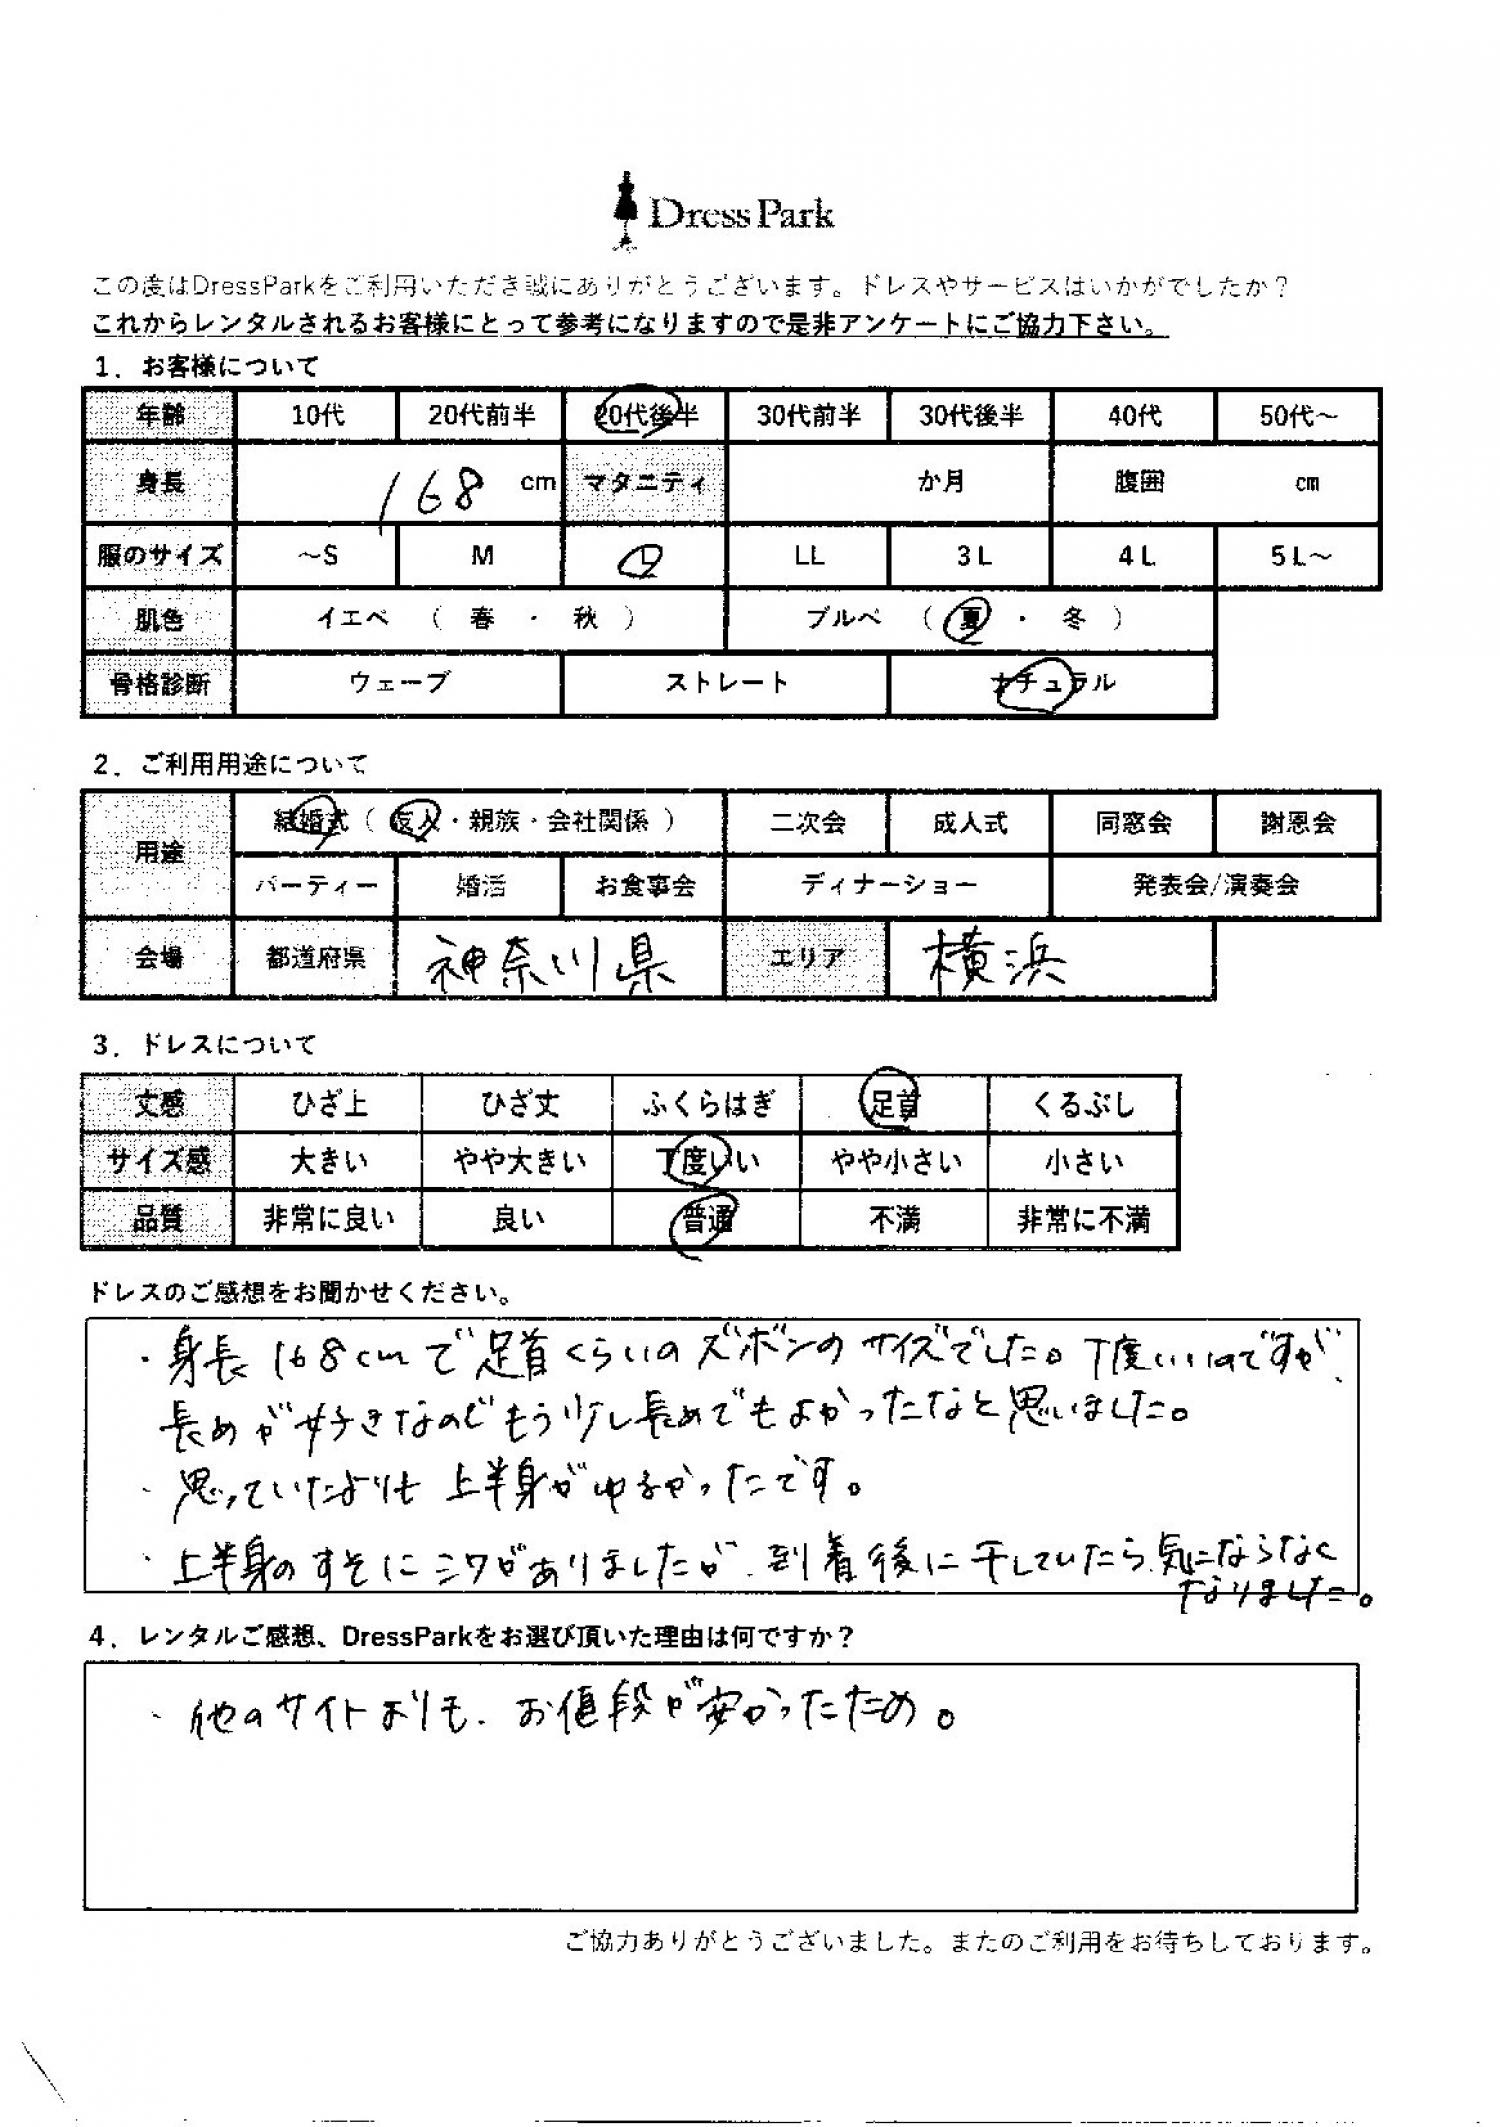 Dress Park
この度はDressParkをご利用いただき誠にありがとうございます。ドレスやサービスはいかがでしたか？
これからレンタルされるお客様にとって参考になりますので是非アンケートにご協力下さい。
1．お客様について
年齢 10代 20代前半 20代後半 30代前半 30代後半 40代 50代～
身長 168 cm マタニティ か月 腹囲 cm
服のサイズ ～S M L LL 3L 4L 5L～
肌色 イエベ （ 春 ・ 秋 ） ブルベ （ 夏 ・ 冬 ）
骨格診断 ウェーブ ストレート ナチュラル
2．ご利用用途について
用途 結婚式（ 友人・親族・会社関係 ） 二次会 成人式 同窓会 謝恩会
パーティー 婚活 お食事会 ディナーショー 発表会/演奏会
会場 都道府県 神奈川県 エリア 横浜
3．ドレスについて
丈感 ひざ上 ひざ丈 ふくらはぎ 足首 くるぶし
サイズ感 大きい やや大きい 丁度いい やや小さい 小さい
品質 非常に良い 良い 普通 不満 非常に不満
ドレスのご感想をお聞かせください。
・身長168cmで足首くらいのズボンのサイズでした。丁度いいのですが、
長めが好きなのでもう少し長めでもよかったなと思いました。
・思っていたよりも上半身がゆるかったです。
・上半身のすそにシワがありましたが、到着後に干していたら気にならなく
なりました。
4．レンタルご感想、DressParkをお選び頂いた理由は何ですか？
・他のサイトよりも、お値段が安かったため。
ご協力ありがとうございました。またのご利用をお待ちしております。